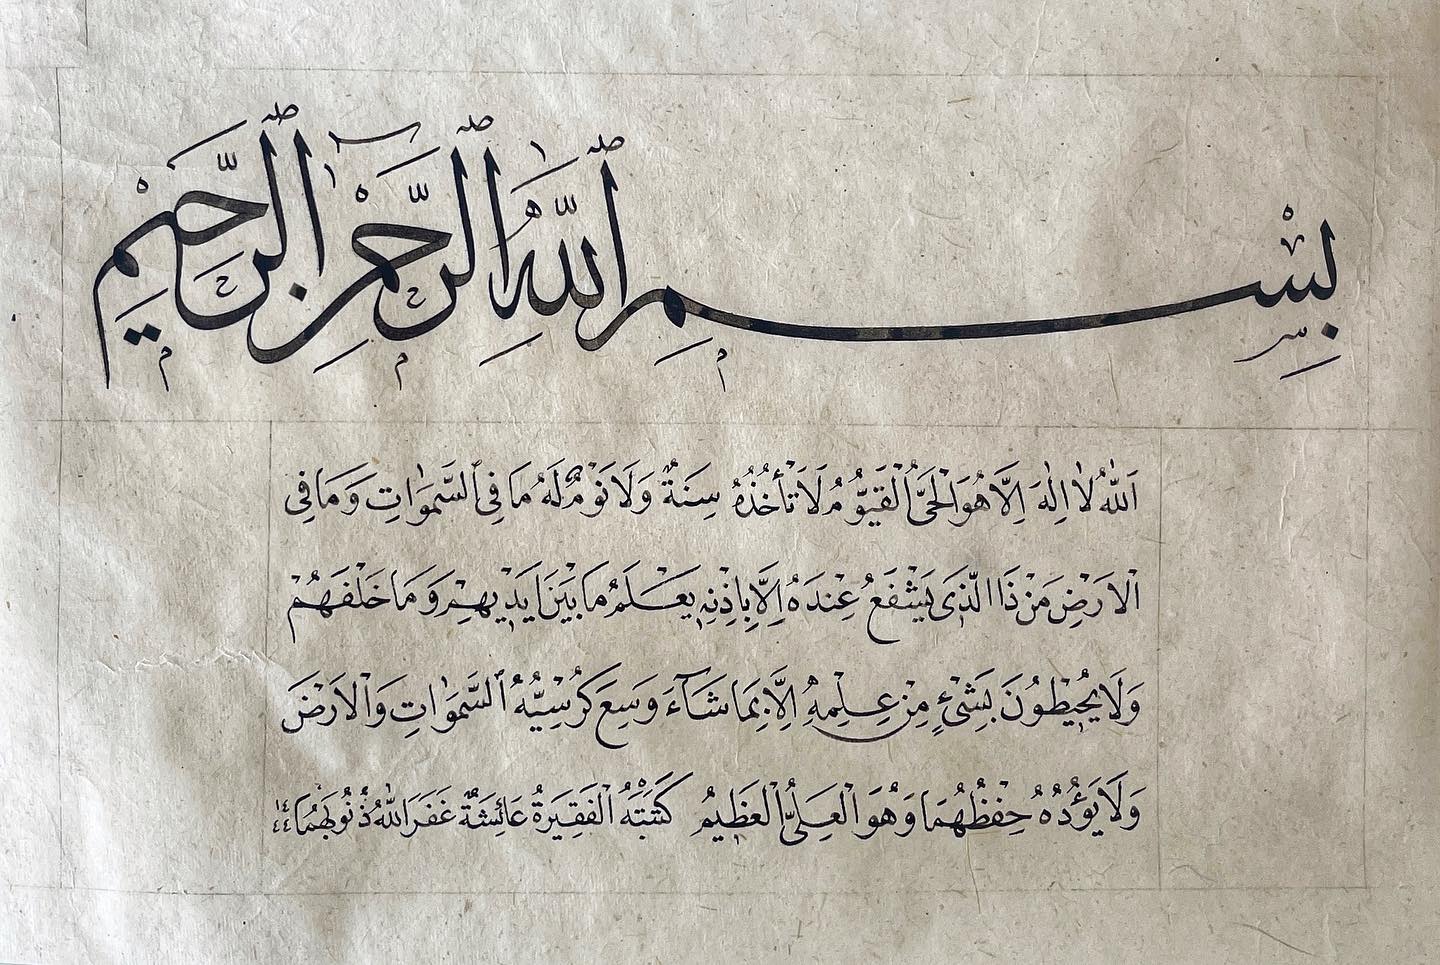 بِسْمِ ٱللّٰهِ ٱلرَّحْمٰنِ ٱلرَّحِيْمِ
اَللّٰهُ لَٓا اِلٰهَ اِلَّا هُوَ الْحَىُّ الْقَيُّومُ لَا تَأْخُذُهُ سِنَةٌ وَلَا نَوْمٌ لَهُ مَا فِى ٱلسَّمٰوَاتِ وَمَا فِى
الْاَرْضِ مَنْ ذَا الَّذٖى يَشْفَعُ عِنْدَهُ اِلَّا بِاِذْنِهٖ يَعْلَمُ مَا بَيْنَ اَيْدٖيهِمْ وَمَا خَلْفَهُمْ
وَلَا يُحٖيطُونَ بِشَىْءٍ مِنْ عِلْمِهٖ اِلَّا بِمَا شَٓاءَ وَسِعَ كُرْسِيُّهُ ٱلسَّمٰوَاتِ وَالْاَرْضَ
وَلَا يَؤُدُهُ حِفْظُهُمَا وَهُوَ الْعَلِىُّ الْعَظٖيمُ كَتَبَتْهُ الْفَقِيرَةُ عَائِشَةٌ غَفَرَ اللّٰهُ ذُنُوبَهُمَا ١٤٤٤